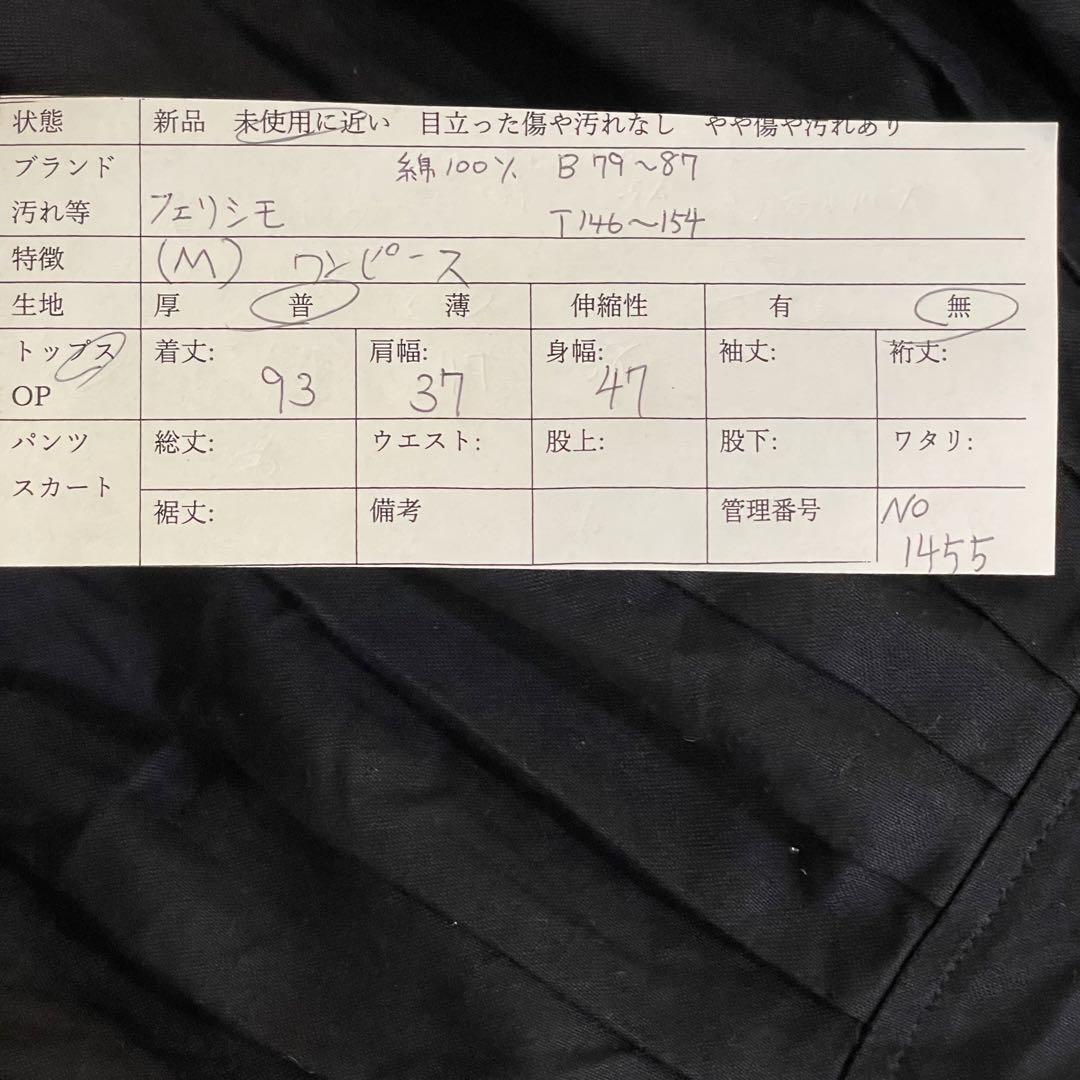 状態 新品 未使用に近い 目立った傷や汚れなし やや傷や汚れあり
ブランド 綿100% B 79～87
汚れ等 フェリシモ T146～154
特徴 (M) ワンピース
生地 厚 普 薄 伸縮性 有 無
トップス 着丈: 肩幅: 身幅: 袖丈: 裄丈:
OP 93 37 47
パンツ 総丈: ウエスト: 股上: 股下: ワタリ:
スカート
裾丈: 備考 管理番号 NO
1455